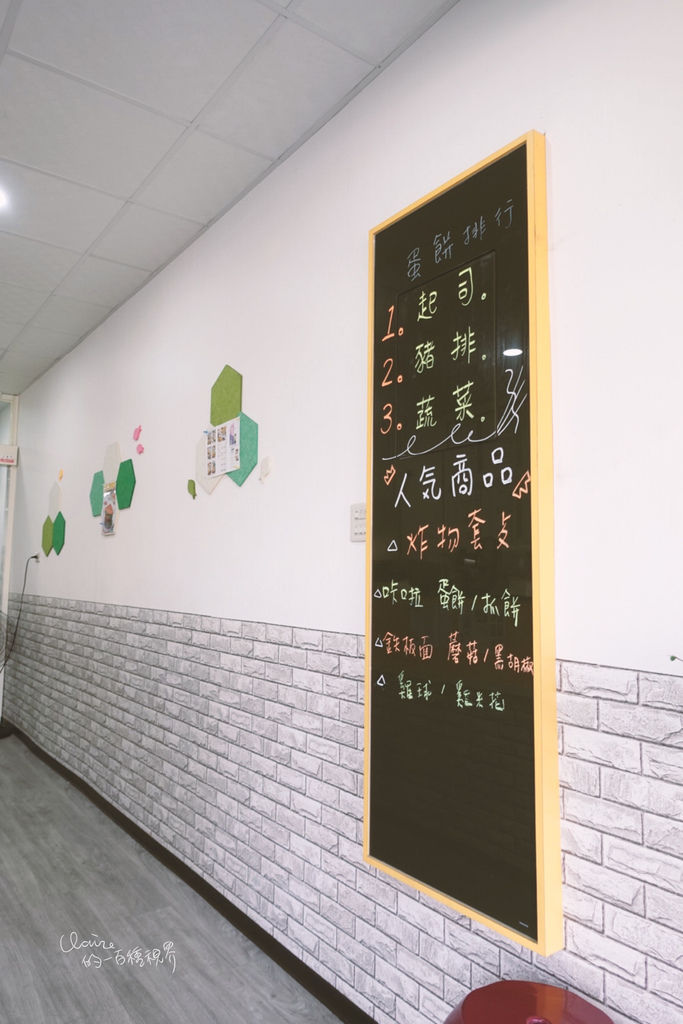 蛋餅排行
1。起司。
2。豬排。
3。蔬菜。
人気商品
△炸物套点
△咔啦 蛋餅/抓餅
△鉄板面 蘑菇/黑胡椒
△雞球/雞米花
Claire
的一百種視界